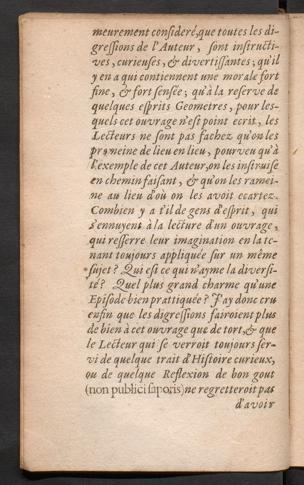 meurement consideré, que toutes les di-
gressions de l'Auteur, sont instructi-
ves, curieuses, & divertissantes; qu'il
y en a qui contiennent une morale fort
fine, & fort sensée; qu'à la reserve de
quelques esprits Geometres, pour les-
quels cet ouvrage n'est point ecrit, les
Lecteurs ne sont pas fachez qu'on les
promeine de lieu en lieu, pourveu qu'à
l'exemple de cet Auteur, on les instruise
en chemin faisant, & qu'on les ramei-
ne au lieu d'où on les avoit ecartez.
Combien y a t'il de gens d'esprit, qui
s'ennuyent à la lecture d'un ouvrage,
qui resserre leur imagination en la te-
nant toujours appliquée sur un même
sujet? Qui est ce qui n'ayme la diversi-
té? Quel plus grand charme qu'une
Episode bien prattiquée? J'ay donc cru
enfin que les digressions fairoient plus
de bien à cet ouvrage que de tort, & que
le Lecteur qui se verroit toujours ser-
vi de quelque trait d'Histoire curieux,
ou de quelque Reflexion de bon gout
(non publici saporis) ne regretteroit pas
d'avoir